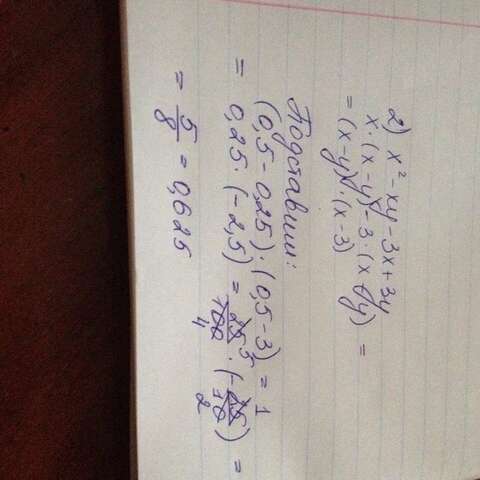 2) x² - xy - 3x + 3y
x·(x-y) - 3·(x-y) =
= (x-y)·(x-3)
Подставим:
(0,5 - 0,25)·(0,5-3) =
= 0,25·(-2,5) = 25/100 · (-25/10) =
= 5/8 = 0,625